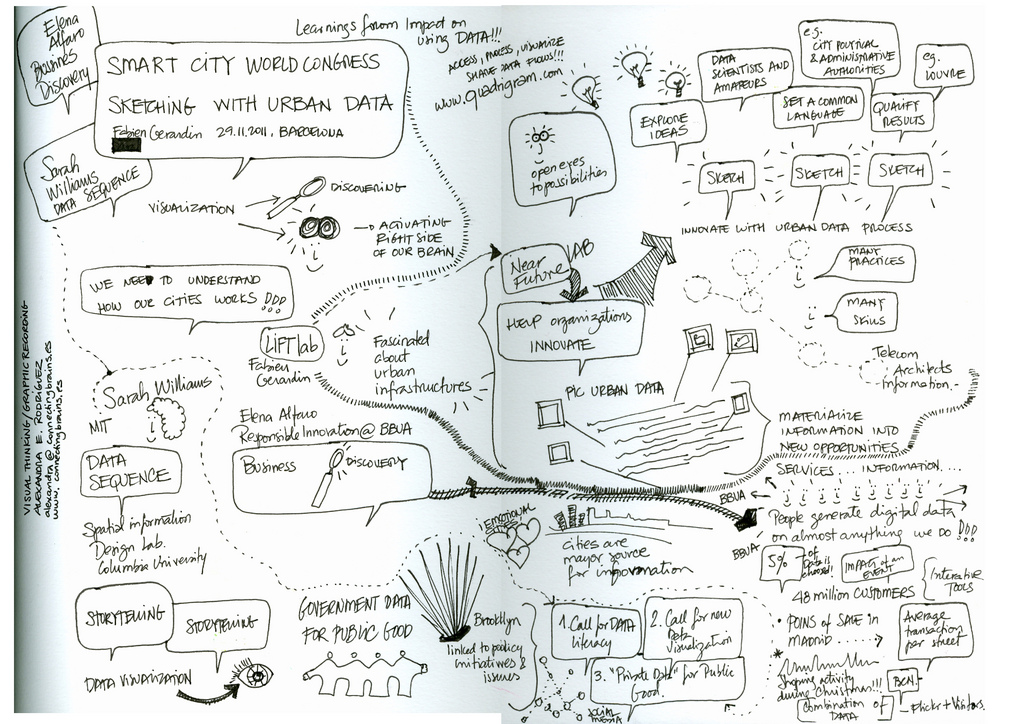 Elena
Alfaro
Business
Discovery
Learnings from Impact on
using DATA!!!
ACCESS, PROCESS, VISUALIZE
SHARE DATA FLOWS!!!
www.quadrigram.com
SMART CITY WORLD CONGRESS
SKETCHING WITH URBAN DATA
Fabien Gerardin 29.11.2011, BARCELONA
Sarah
Williams
DATA SEQUENCE
VISUALIZATION
DISCOVERING
ACTIVATING
RIGHT SIDE
OF OUR BRAIN
WE NEED TO UNDERSTAND
HOW OUR CITIES WORKS !!!
LiFT lab
Fabien
Gerardin
Fascinated
about
urban
infrastructures
VISUAL THINKING/GRAPHIC RECORDING
ALEXANDRA E. RODRIGUEZ
alexandra@connectingbrains.es
www.connectingbrains.es
Sarah Williams
MIT
DATA
SEQUENCE
Spatial information
Design Lab.
Columbia University
Elena Alfaro
Responsible Innovation @ BBVA
Business DISCOVERY
STORYTELLING
STORYTELLING
DATA VISUALIZATION
GOVERNMENT DATA
FOR PUBLIC GOOD
Brooklyn
linked to policy
initiatives &
issues
open eyes
to possibilities
EXPLORE
IDEAS
DATA
SCIENTISTS AND
AMATEURS
e.g.
CITY POLITICAL
& ADMINISTRATIVE
AUTHORITIES
e.g.
LOUVRE
SET A COMMON
LANGUAGE
QUALIFY
RESULTS
SKETCH
SKETCH
SKETCH
INNOVATE WITH URBAN DATA PROCESS
Near
Future
LAB
HELP organizations
INNOVATE
PIC URBAN DATA
MANY
PRACTICES
MANY
SKILLS
Telecom
Architects
Information
MATERIALIZE
INFORMATION INTO
NEW OPPORTUNITIES
SERVICES.... INFORMATION....
BBVA
People generate digital data
on almost anything we do !!!
BBVA
5%
of
Data is
choosed!
IMPACT of an
EVENT
48 million CUSTOMERS
Interactive
TOOLS
EMOTIONAL
cities are
mayor source
for information
1. Call for DATA
Literacy
2. Call for new
Data
Visualization
3. "Private Data" for Public
Good.
SOCIAL
MEDIA
POINS of SALE IN
MADRID
Average
transaction
per street
Shoping activity
during Christmas!!!
Combination of
DATA
BCN
Flickr + Visitors